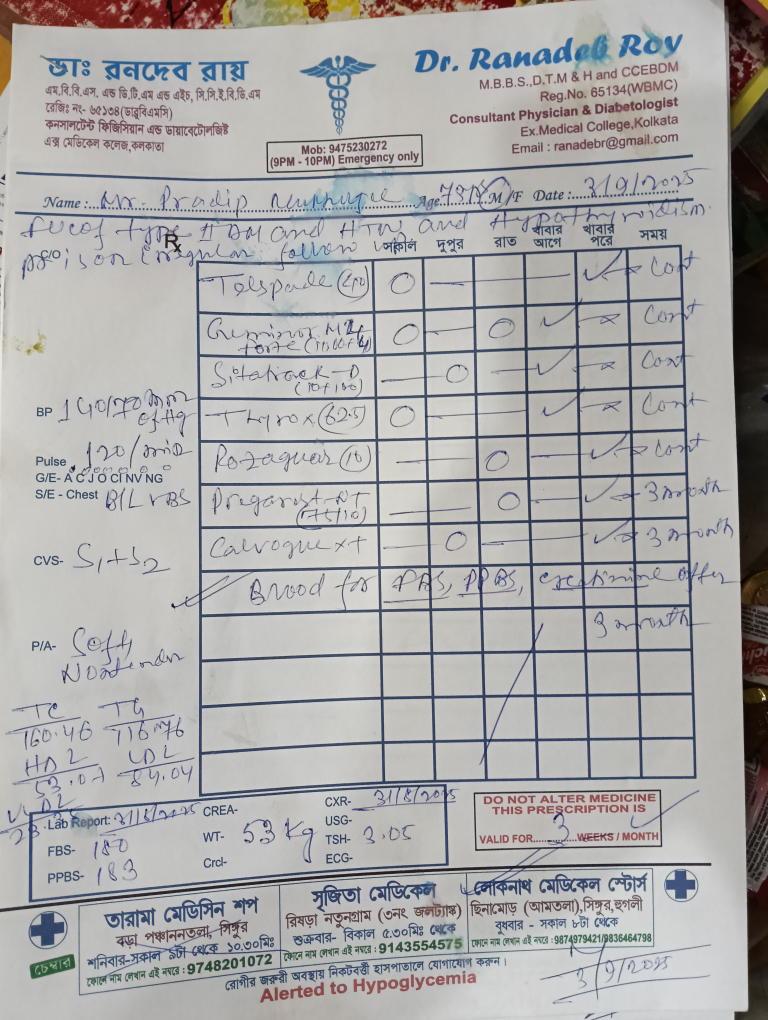 ডাঃ রনদেব রায়
এম.বি.বি.এস. এন্ড ডি.টি.এম এন্ড এইচ, সি.সি.ই.বি.ডি.এম
রেজিঃ নং- ৬৫১৩৪(ডাব্লুবিএমসি)
কনসালটেন্ট ফিজিসিয়ান এন্ড ডায়াবেটোলজিষ্ট
এক্স মেডিকেল কলেজ,কলকাতা
Mob: 9475230272
(9PM - 10PM) Emergency only
Dr. Ranadeb Roy
M.B.B.S.,D.T.M & H and CCEBDM
Reg.No. 65134(WBMC)
Consultant Physician & Diabetologist
Ex.Medical College,Kolkata
Email : ranadebr@gmail.com
Name : Mr. Pradip Age 73 M/F Date : 3/9/2025
type II DM and HTN and Hypothyroidism
is on irregular follow
Rx
সকাল দুপুর রাত খাবার আগে খাবার পরে সময়
Telspade (40) O — — — ✓ → Cont
forte O — O ✓ — Cont
Sitatrack-D (10+100) — O — ✓ — Cont
Thyrox (62.5) O — ✓ — Cont
Rozaguar (10) — O — ✓ Cont
(75/10) — O — ✓ → 3 month
— O — ✓ → 3 month
Blood for FBS, PPBS, creatinine after
3 month
BP 140/70 mm of Hg
Pulse 120/min
G/E- A C J O CI NV NG
S/E - Chest B/L VBS
CVS- S1+S2
P/A- Soft
Nontender
TC TG
160.46 116.76
HDL LDL
53.07 84.04
VLDL
Lab Report: 31/8/2025 CREA- CXR- 31/8/2025
FBS- 180 WT- 53 kg USG-
PPBS- 183 Crcl- TSH- 3.05
ECG-
DO NOT ALTER MEDICINE
THIS PRESCRIPTION IS
VALID FOR 3 WEEKS / MONTH
চেম্বার
তারামা মেডিসিন শপ
বড়া পঞ্চাননতলা, সিঙ্গুর
শনিবার-সকাল ৯টা থেকে ১০.৩০মিঃ
ফোনে নাম লেখান এই নম্বরে : 9748201072
সুজিতা মেডিকেল
রিষড়া নতুনগ্রাম (৩নং জলট্যাঙ্ক)
শুক্রবার- বিকাল ৫.৩০মিঃ থেকে
ফোনে নাম লেখান এই নম্বরে : 9143554575
লোকনাথ মেডিকেল স্টোর্স
ছিনামোড় (আমতলা),সিঙ্গুর,হুগলী
বুধবার - সকাল ৮টা থেকে
ফোনে নাম লেখান এই নম্বরে : 9874979421/9836464798
রোগীর জরুরী অবস্থায় নিকটবর্তী হাসপাতালে যোগাযোগ করুন।
Alerted to Hypoglycemia
3/9/2025